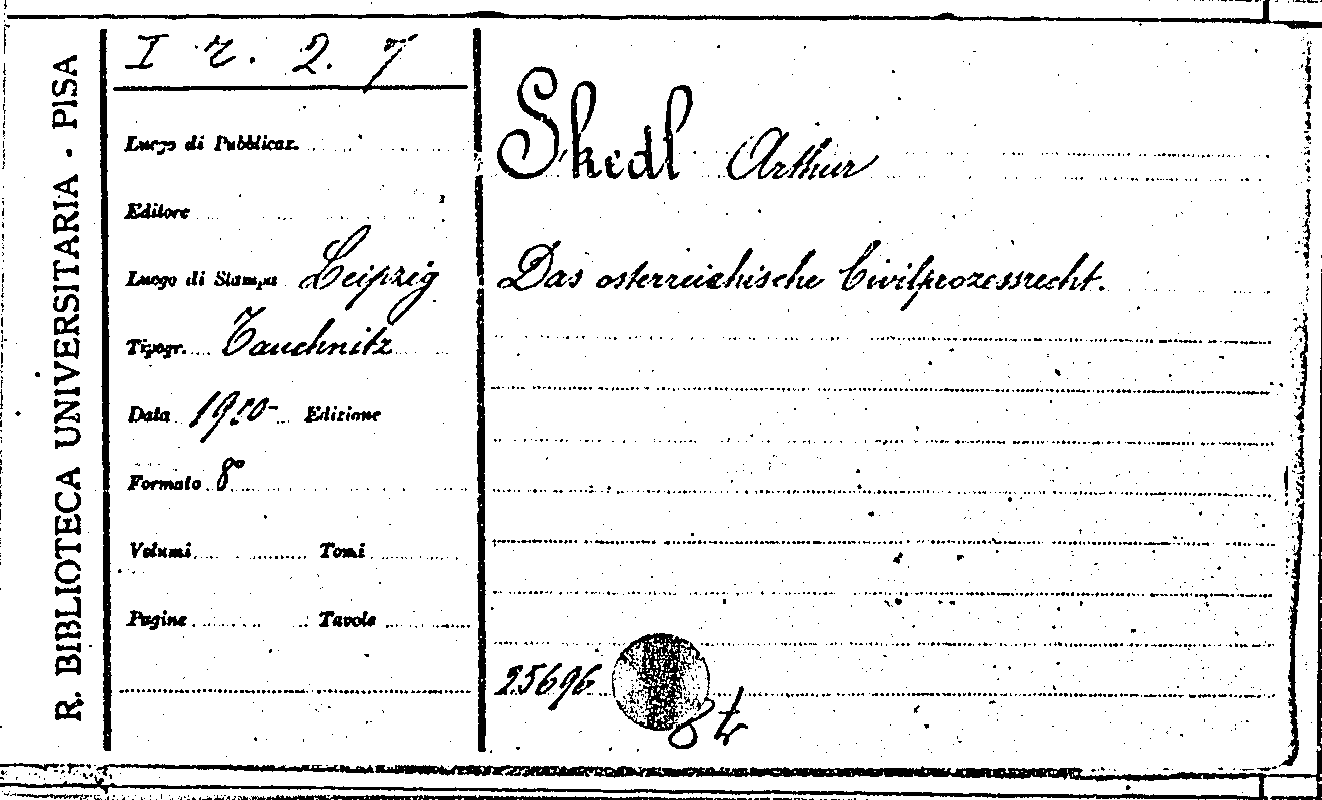 R. BIBLIOTECA UNIVERSITARIA - PISA
I r. 2. 7
Luogo di Pubblicaz.
Editore
Luogo di Stampa Leipzig
Tipogr. Tauchnitz
Data 1900 Edizione
Formato 8°
Volumi Tomi
Pagine Tavole
Skedl Arthur
Das osterreichische Civilprozessrecht.
25696